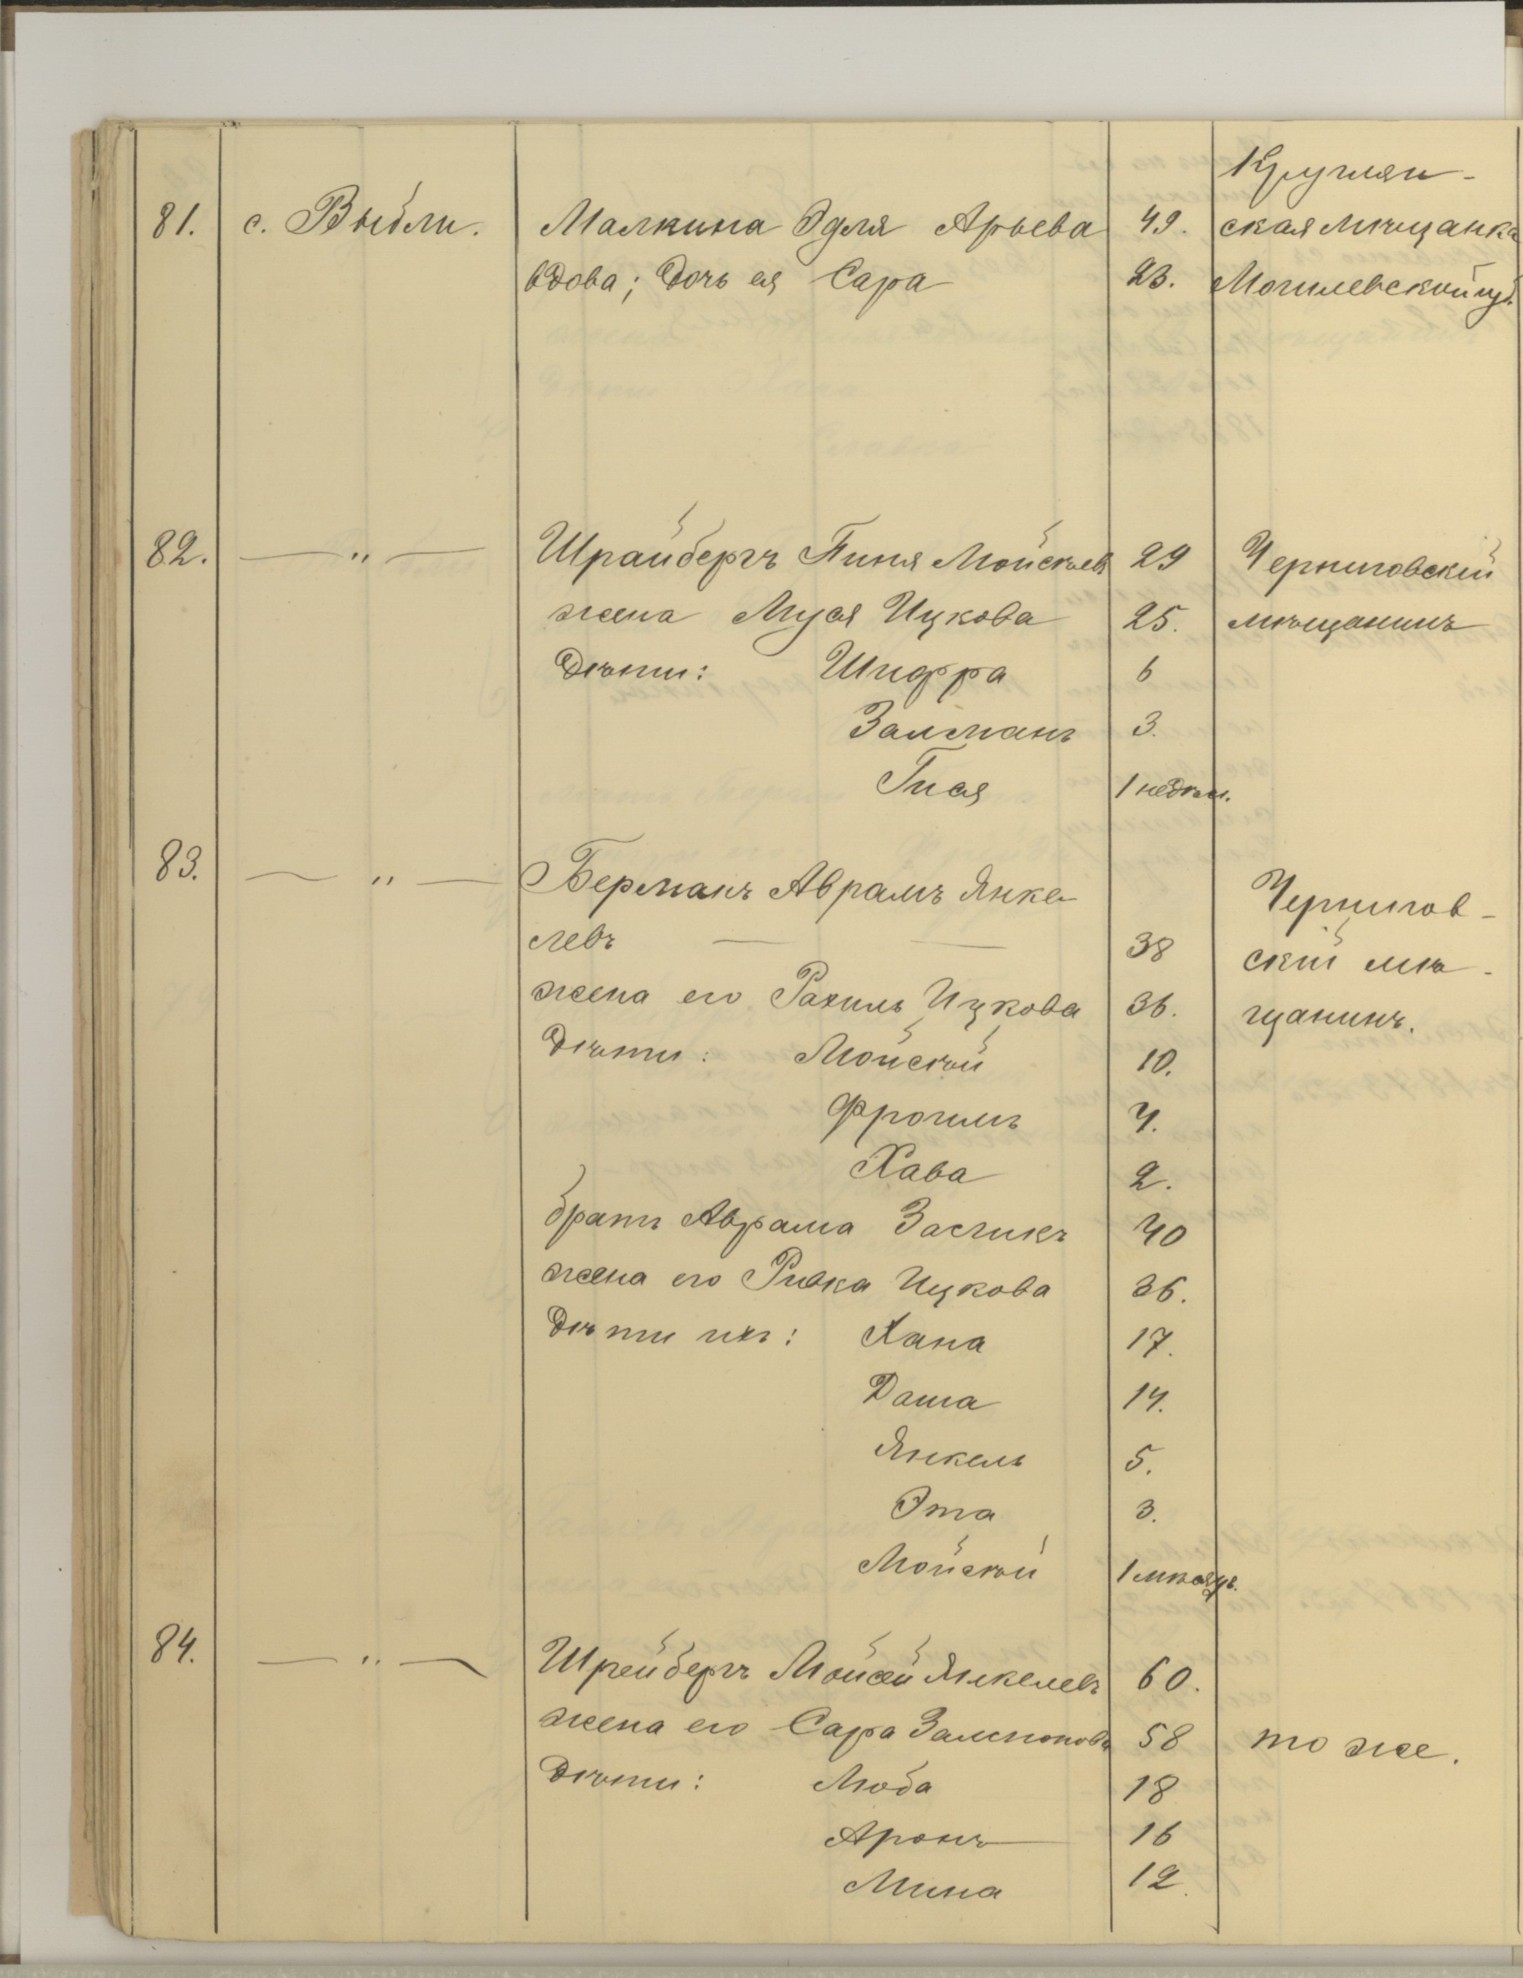 Круглян-
81. с. Выбли. Малкина Эдля Арьева 49. ская мѣщанка
вдова; дочь ея Сара 23. Могилевской губ.
82. — " — Шрайбергъ Пиня Мойсѣевъ 29 Черниговскій
жена Муся Ицкова 25. мѣщанинъ
Дѣти: Шифра 6
Залманъ 3.
Гися 1 недѣл.
83. — " — Берманъ Аврамъ Янке- Чернигов-
левъ — — 38 скій мѣ-
жена его Рахиль Ицкова 36. щанинъ.
Дѣти: Мойсѣй 10.
Фроимъ 4.
Хава 2.
братъ Аврама Зоситъ 40
жена его Ривка Ицкова 36.
Дѣти ихъ: Хана 17.
Даша 14.
Янкель 5.
Эта 3.
Мойсѣй 1 мѣсяцъ.
84. — " — Шрейбергъ Мойсей Янкелевъ 60.
жена его Сара Залмонова 58 то же.
Дѣти: Люба 18
Аронъ 16
Мина 12.